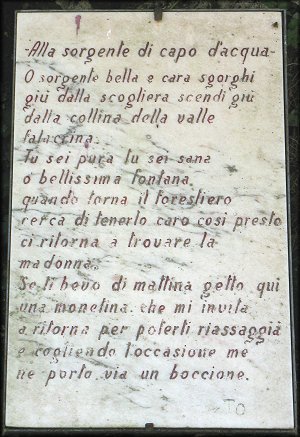 -Alla sorgente di capo d'acqua-
O sorgente bella e cara sgorghi
giù dalla scogliera scendi giù
dalla collina della valle
falacrina.
Tu sei pura tu sei sana
o bellissima fontana
quando torna il forestiero
cerca di tenerlo caro così presto
ci ritorna a trovare la
madonna.
Se ti bevo di mattina getto qui
una monetina. che mi invita
a ritorna per poterti riassaggià
e cogliendo l'occasione me
ne porto via un boccione.